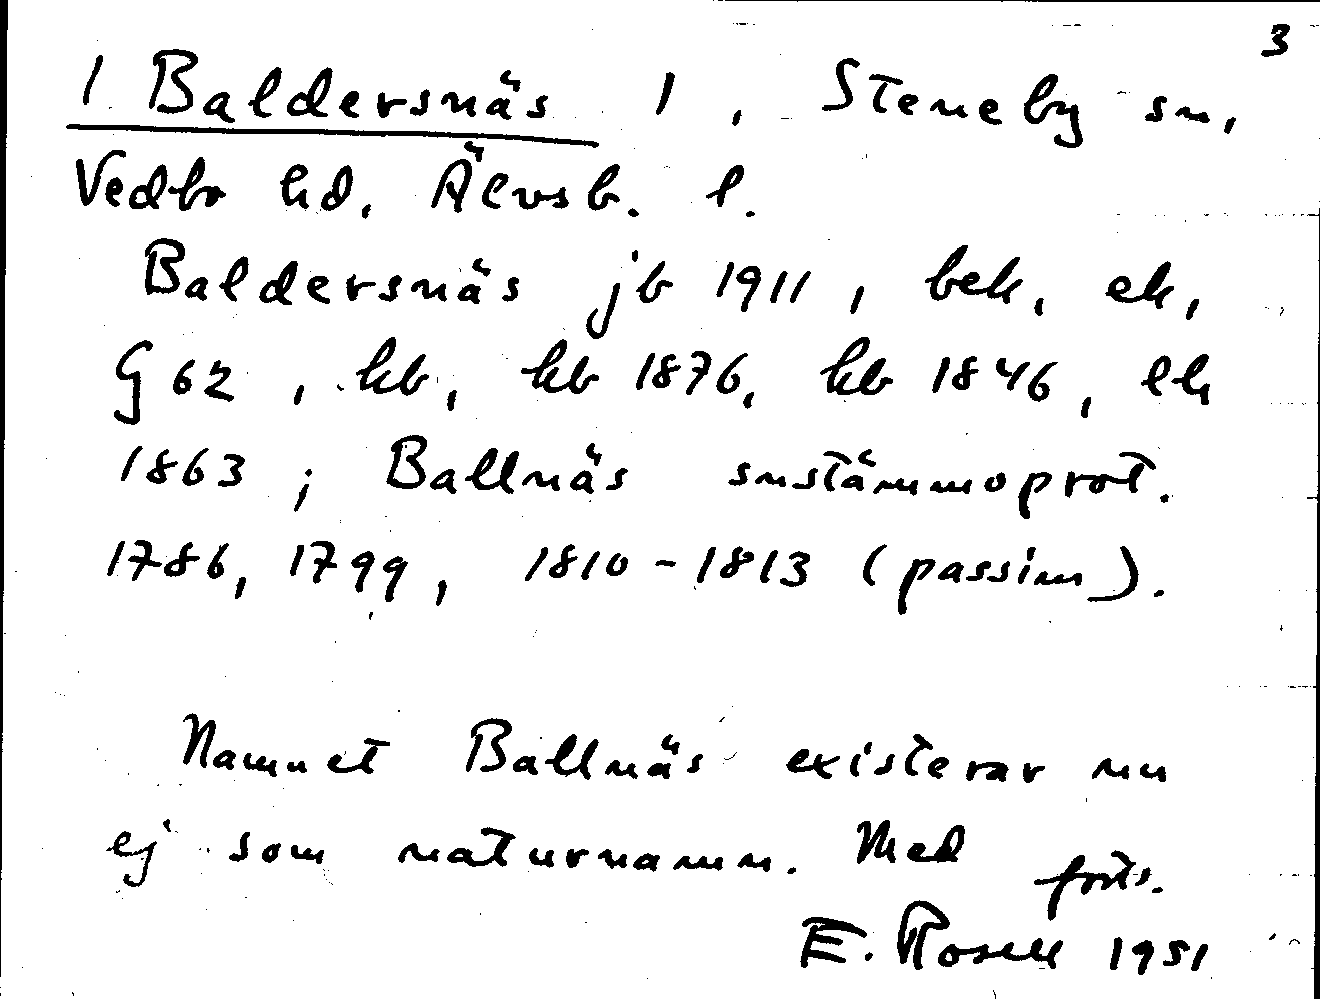 3
1 Baldersnäs 1, Steneby sn,
Vedbo hd, Älvsb. l.
Baldersnäs jb 1911, bek, ek,
G 62, kb, kb 1876, kb 1846, ek
1863; Ballnäs snstämmoprot.
1786, 1799, 1810-1813 (passim).
Namnet Ballnäs existerar nu
ej som naturnamn. Med
forts.
E. Rosell 1951